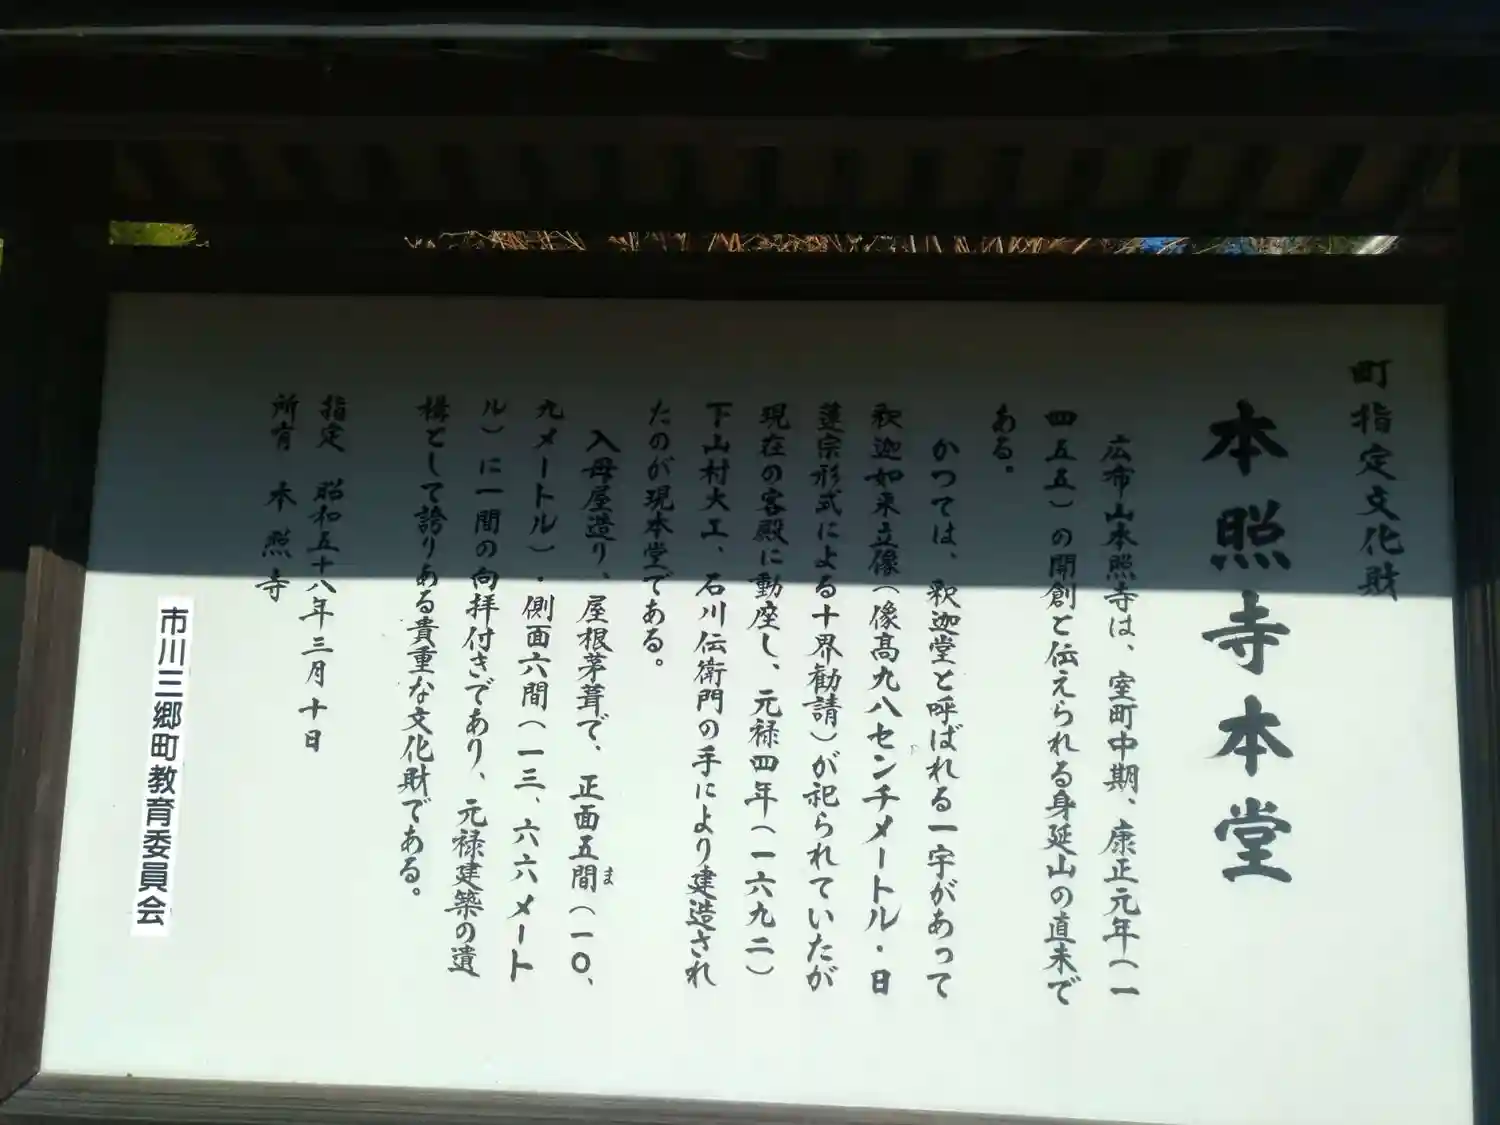 町指定文化財
本照寺本堂
広布山本照寺は、室町中期、康正元年(一
四五五)の開創と伝えられる身延山の直末で
ある。
かつては、釈迦堂と呼ばれる一宇があって
釈迦如来立像(像高九八センチメートル・日
蓮宗形式による十界勧請)が祀られていたが
現在の客殿に動座し、元禄四年(一六九二)
下山村大工、石川伝衛門の手により建造され
たのが現本堂である。
入母屋造り、屋根茅葺で、正面五間(一〇、
ま
九メートル)・側面六間(一三、六六メート
ル)に一間の向拝付きであり、元禄建築の遺
構として誇りある貴重な文化財である。
指定 昭和五十八年三月十日
所有 本照寺
市川三郷町教育委員会